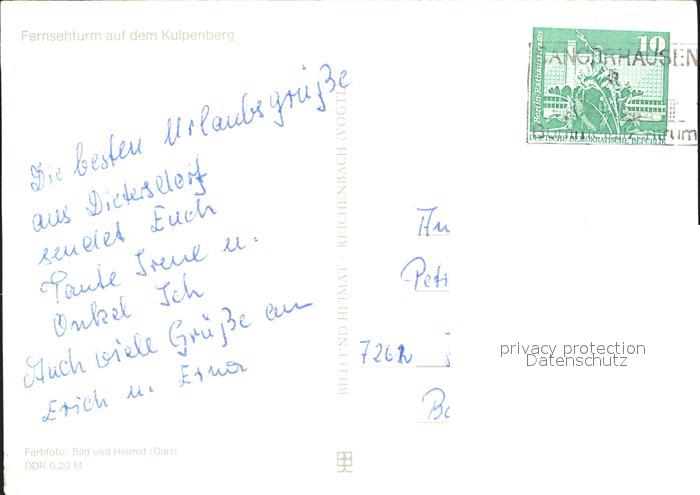 Fernsehturm auf dem Kulpenberg
Berlin-Rathausstraße
10
DEUTSCHE DEMOKRATISCHE REPUBLIK
SANGERHAUSEN
Die besten Urlaubsgrüße
aus Dietersdorf
sendet Euch
Tante Irene u.
Onkel
Auch viele Grüße an
Erich u. Erna
BILD UND HEIMAT · REICHENBACH (VOGTL
An
Peti
Bo
privacy protection
Datenschutz
Farbfoto: Bild und Heimat (Darr)
DDR 0,20 M